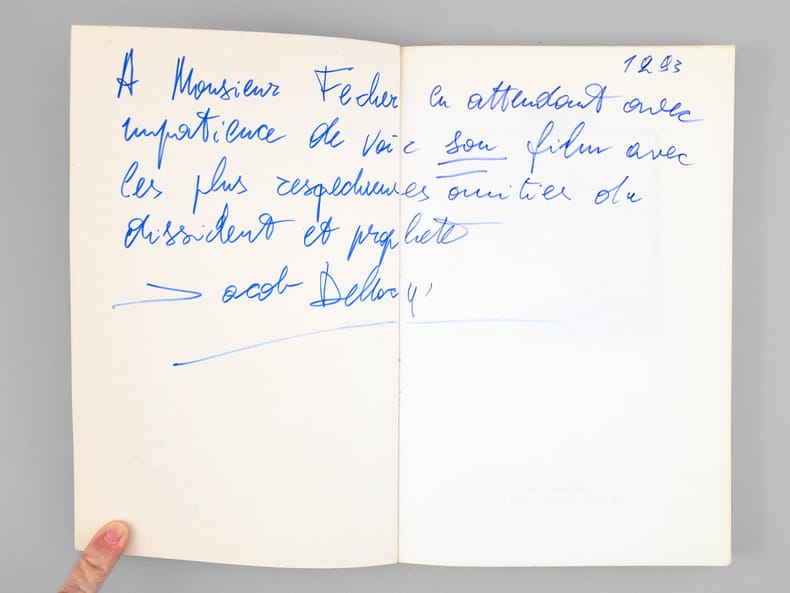 1993
A Monsieur Fecher en attendant avec
impatience de voir son film avec
les plus respectueuses amitiés du
dissident et prophète
Jacob